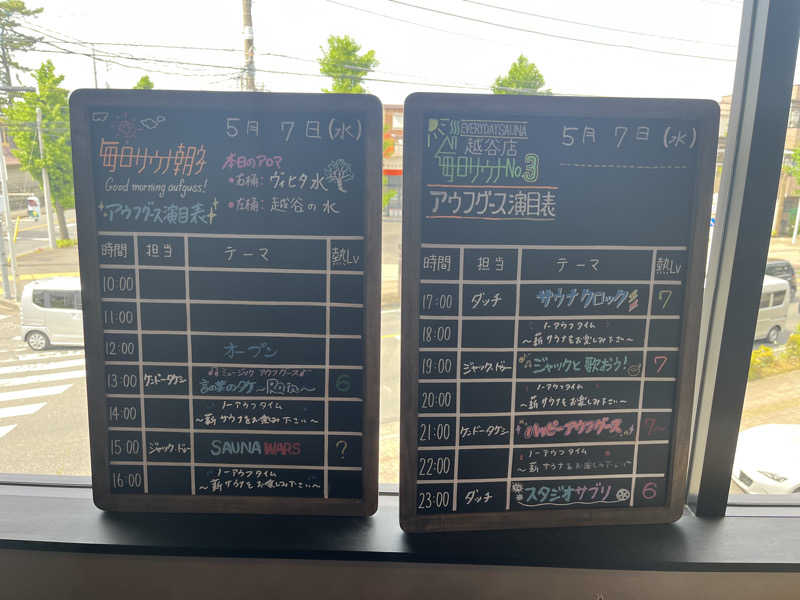 5月 7日(水)
毎日サウナ朝
Good morning aufguss!
アウフグース演目表
本日のアロマ
・右桶:ヴィヒタ水
・左桶:越谷の水
時間 担当 テーマ 熱Lv
10:00
11:00
12:00 オープン
13:00 ケンドータケシ ♪♪ミュージック アウフグース♪
6
14:00 ノーアウフタイム
~薪サウナをお楽しみ下さい~
15:00 ジャック・ドゥー SAUNA WARS ?
16:00 ノーアウフタイム
~薪サウナをお楽しみ下さい~
EVERYDAYSAUNA
越谷店
毎日サウナNo.3
アウフグース演目表
5月 7日(水)
時間 担当 テーマ 熱Lv
17:00 ダッチ サウナクロック 7
18:00 ノーアウフタイム
~薪サウナをお楽しみ下さい~
19:00 ジャック・ドゥー ジャックと歌おう! 7
20:00 ノーアウフタイム
~薪サウナをお楽しみ下さい~
21:00 ケンドータケシ ハッピーアウフグース 7~
22:00 ノーアウフタイム
~薪サウナをお楽しみ下さい~
23:00 ダッチ スタジオサブリ 6